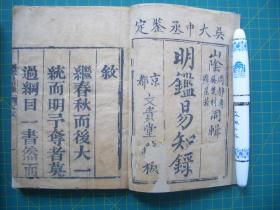 吳大中丞鑒定
山陰
同輯
明鑑易知錄
京都
文貴堂
敘
繼春秋而後大一
統而明予奪者莫
過綱目一書然而